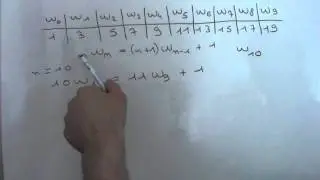 w₀ w₁ w₂ w₃ w₄ w₅ w₆ w₇ w₈ w₉
1 3 5 7 9 11 13 15 17 19
n wₙ = (n+1) wₙ₋₁ + 1 w₁₀
n = 10
10 w = 11 w₉ + 1